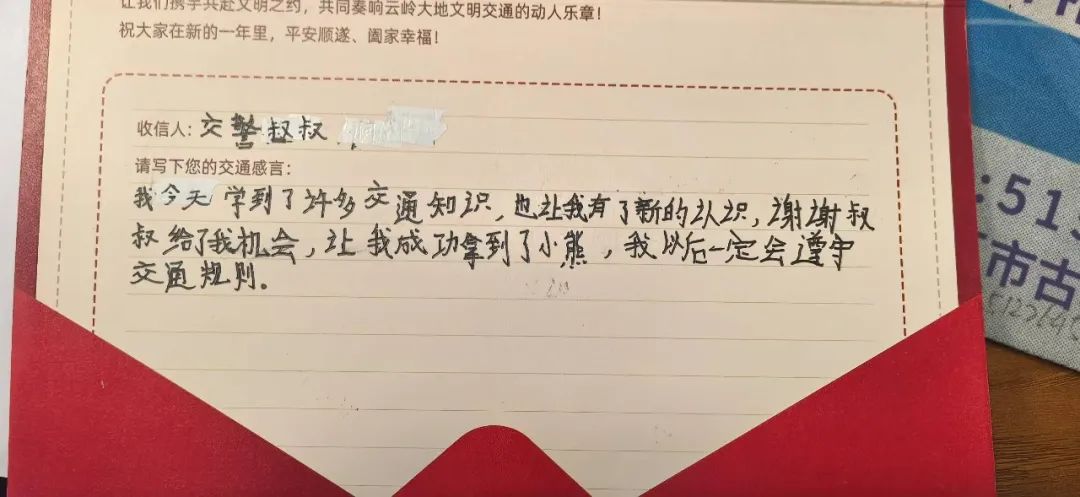 让我们携手共赴文明之约，共同奏响云岭大地文明交通的动人乐章！
祝大家在新的一年里，平安顺遂、阖家幸福！
收信人：交警叔叔
请写下您的交通感言：
我今天学到了许多交通知识，也让我有了新的认识，谢谢叔
叔给了我机会，让我成功拿到了小熊，我以后一定会遵守
交通规则。
:51
市古